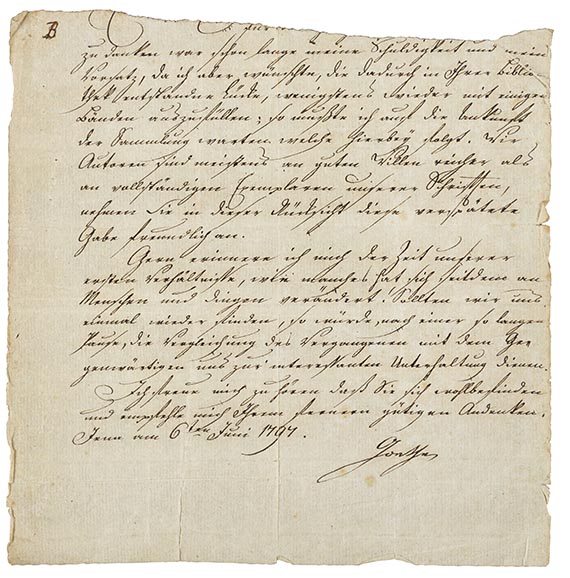 B
zu danken war schon lange meine Schuldigkeit und mein
Vorsatz, da ich aber wünschte, die dadurch in Ihrer Biblio
thek entstandne Lücke, wenigstens wieder mit einigen
Bänden auszufüllen; so mußte ich auf die Ankunft
der Sammlung warten welche hierbey folgt. Wir
Autoren sind meistens an gutem Willen reicher als
an vollständigen Exemplaren unserer Schriften,
nehmen Sie in dieser Rücksicht diese verspätete
Gabe freundlich an.
Gern erinnere ich mich der Zeit unserer
ersten Verhältnisse, wie manches hat sich seitdem an
Menschen und Dingen verändert! Sollten wir uns
einmal wieder finden, so würde, nach einer so langen
Pause, die Vergleichung des Vergangenen mit dem Ge
genwärtigen uns zur interessanten Unterhaltung dienen.
Ich freue mich zu hören daß Sie sich wohlbefinden
und empfehle mich Ihrem ferneren gütigen Andenken.
Jena am 6ten Juni 1797.
Goethe